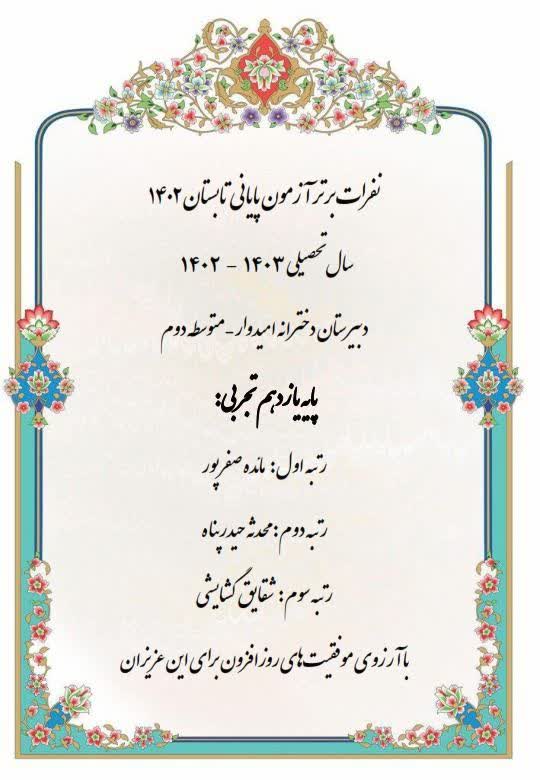 نفرات برتر آزمون پایانی تابستان ۱۴۰۲
سال تحصیلی ۱۴۰۳ - ۱۴۰۲
دبیرستان دخترانه امیدوار - متوسطه دوم
پایه یازدهم تجربی:
رتبه اول: مائده صفرپور
رتبه دوم: محدثه حیدرپناه
رتبه سوم: شقایق گشایشی
با آرزوی موفقیت های روز افزون برای این عزیزان